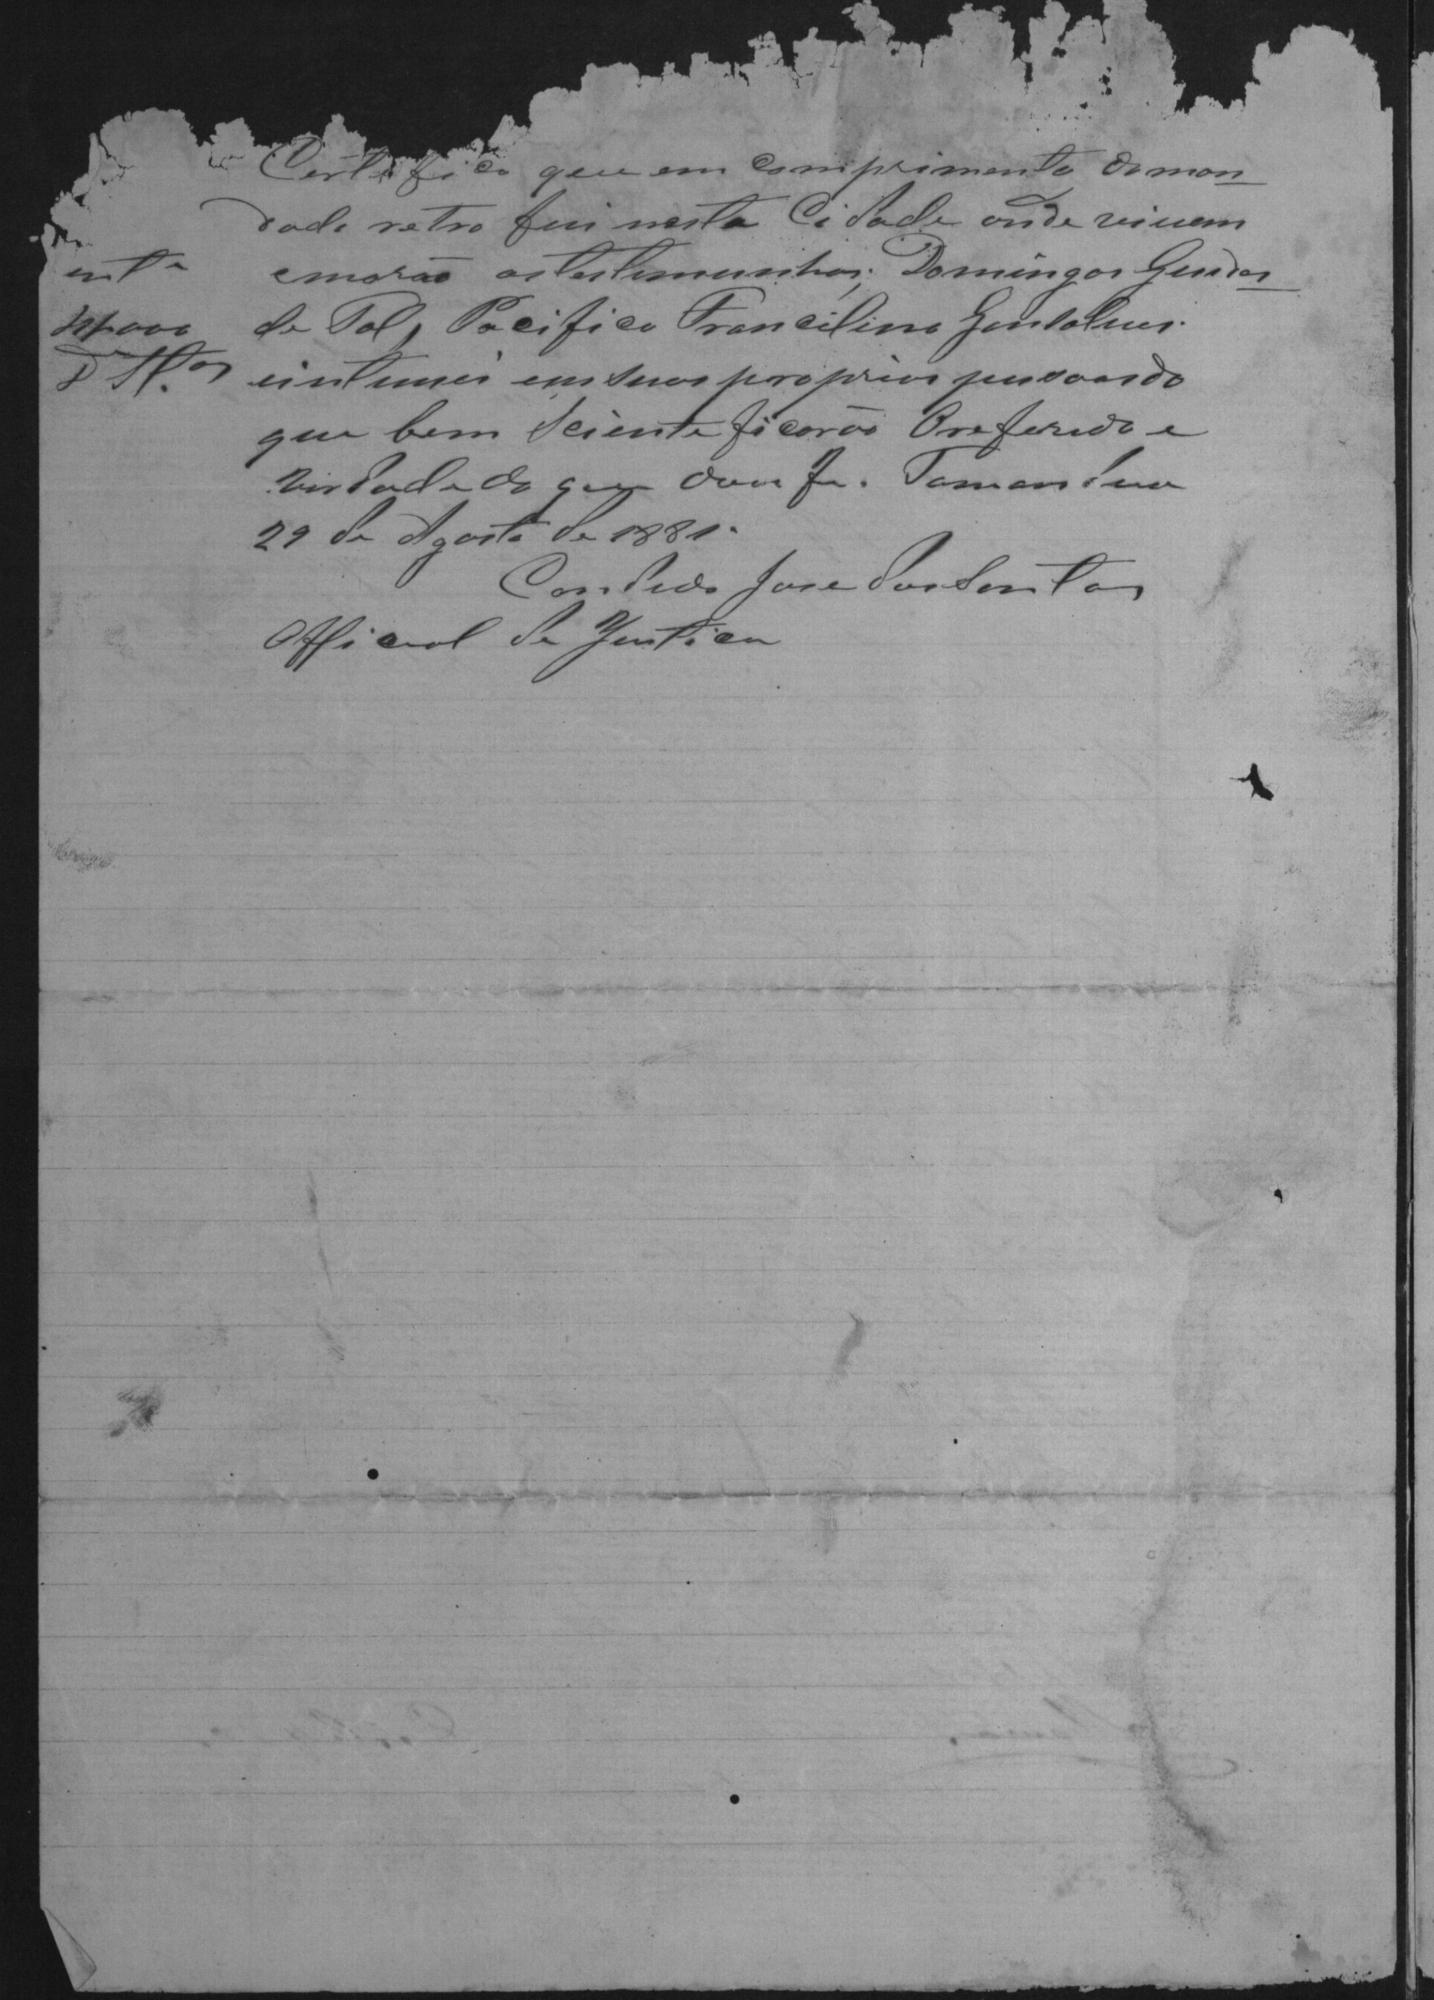 Certifico que em comprimento doman
dado retro fui nesta Cidade onde vivem
emorão astestemunhas, Domingos
de Tal, Pacifico Francilino Gonsalves.
eintimei emsuas proprias pessoas do
que bem sciente ficarão Oreferido e
verdade do que dou fe. Tamandua
29 de Agosto de 1881.
Candido Jose dos Santos
Official de Justica